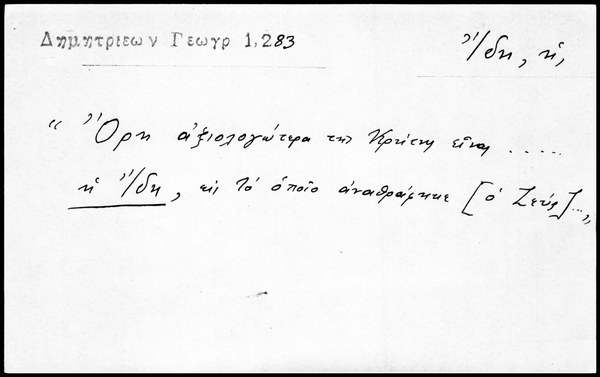 Δημητριεων Γεωγρ 1,283
Ἴδη, ἡ,
“ Ὄρη ἀξιολογώτερα της Κρήτης εἶναι .....
ἡ Ἴδη, εις τὸ ὁποῖο ἀναθράφηκε [ὁ Ζεύς]...„